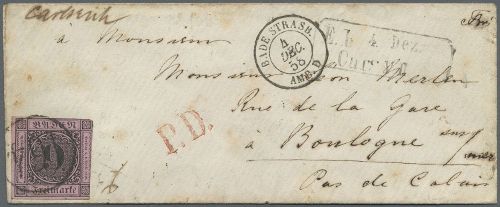 Carlsruh
à Monsieur
Monsieur Léon Merlen
Rue de la Gare
à Boulogne sur
mer
Pas de Calais
BADE STRASB.
4
DEC.
58
AMB. D
E.B. 4 Dez.
Curs V
Fr
P.D.
BADEN
9
Freimarke